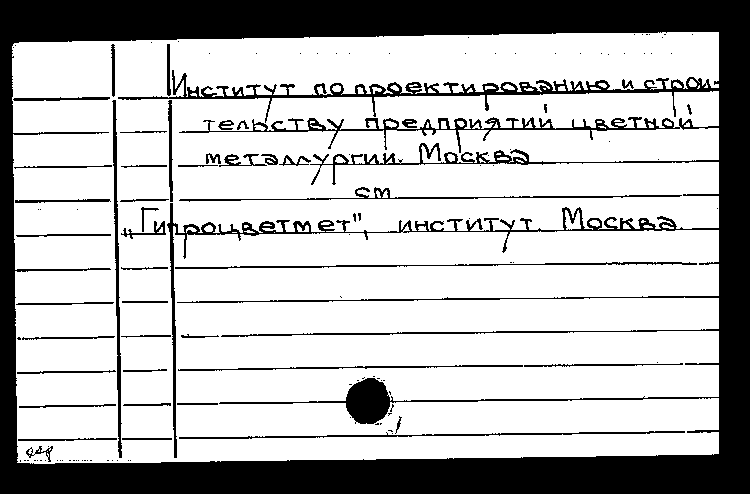 Институт по проектированию и строи-
тельству предприятий цветной
металлургии. Москва
см
„Гипроцветмет", институт. Москва.